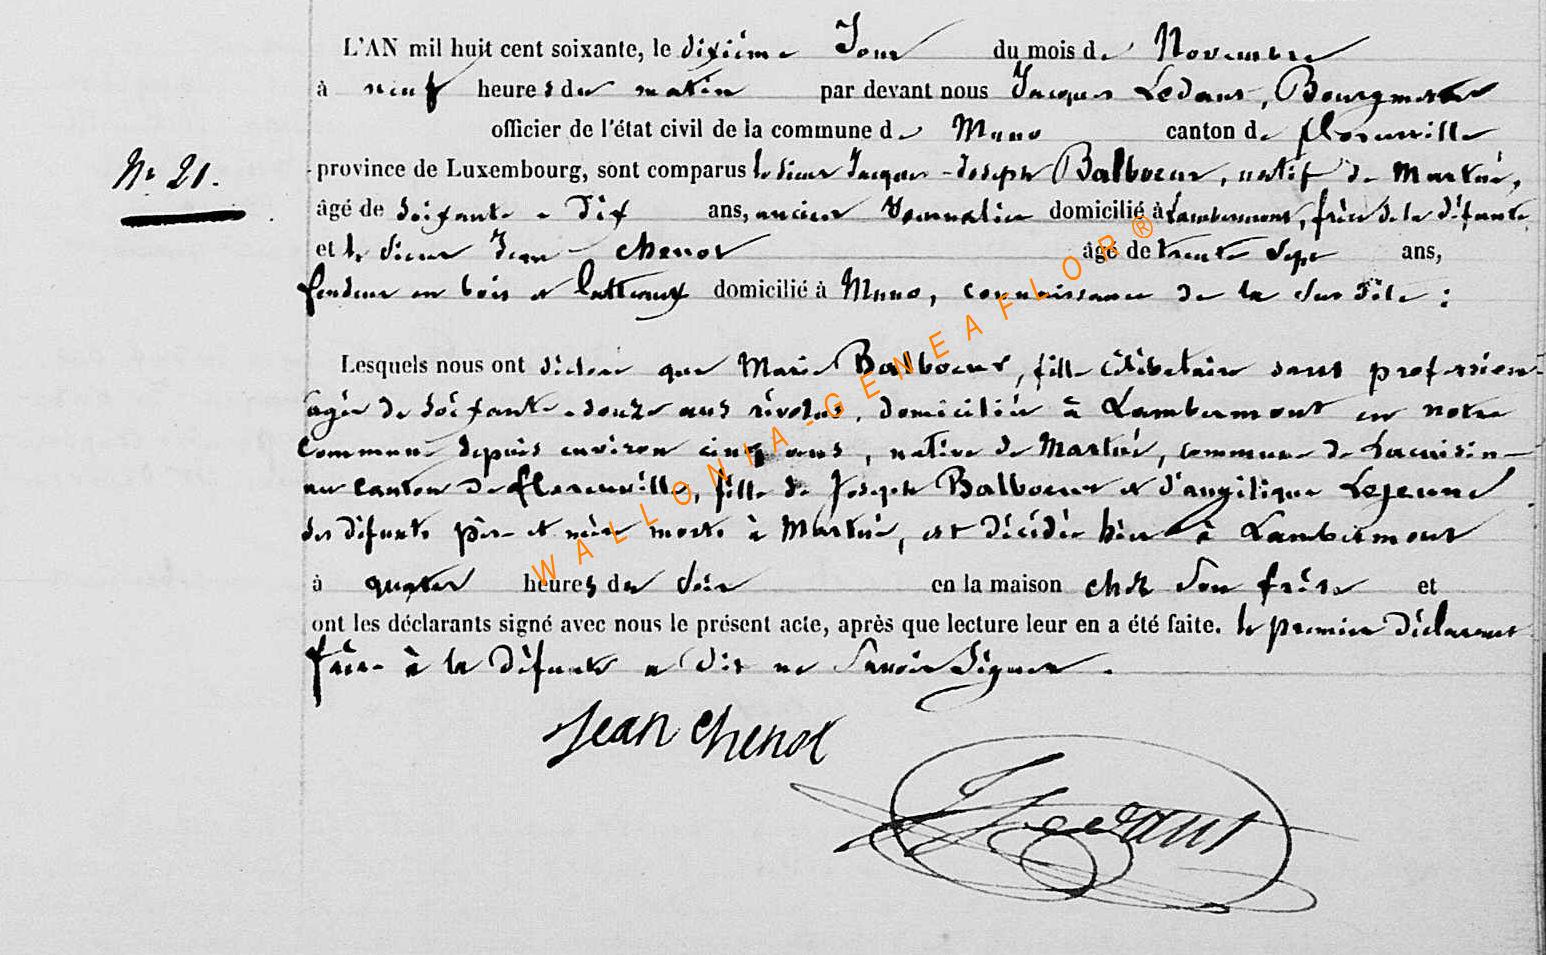 L'AN mil huit cent soixante, le dixième Jour du mois de Novembre
à neuf heures du matin par devant nous Jacques Ledant, Bourgmestre
officier de l'état civil de la commune de Muno canton de florenville
N° 21.
province de Luxembourg, sont comparus le sieur Jacques-Joseph Balboeur, natif de Martué,
âgé de soixante e dix ans, ancien Journalier domicilié à Lambermont, frère de la défunte
et le sieur Jean Chenot âgé de trente sept ans,
fendeur en bois et latteaux domicilié à Muno, connaissance de la sus dite :
Lesquels nous ont déclaré que Marie Balboeur, fille célibataire sans profession
agée de soixante e douze ans révolus, domiciliée à Lambermont en notre
commune depuis environ cinq ans, native de Martué, commune de Lacuisine
au canton de florenville, fille de Joseph Balboeur et d'angélique Lejeune
des défunts père et mère morts à Martué, est décédée hier à Lambermont
à quatre heures du soir en la maison chez son frère et
ont les déclarants signé avec nous le présent acte, après que lecture leur en a été faite. le premier déclarant
frère à la défunte a dit ne savoir signer.
Jean Chenot
J Ledant
WALLONIA-GENEAFLOR®